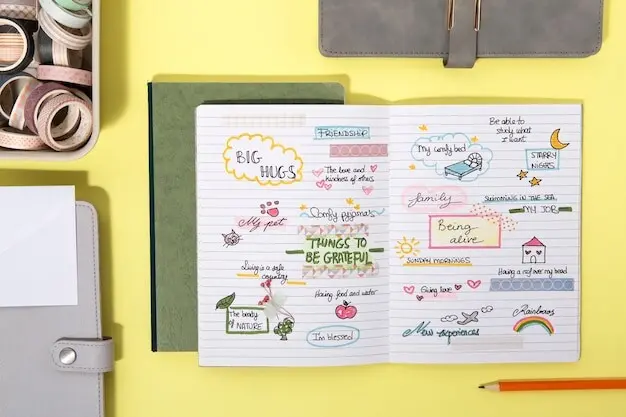 FRIENDSHIP
BIG
HUGS
The love and
kindness of others
My pet
Comfy pyjamas
THINGS TO
BE GRATEFUL
Living in a safe
country
Having food and water
The beauty
of NATURE
I'm blessed
Be able to
study what
I want
My comfy bed
STARRY
NIGHTS
family
SWIMMING IN THE SEA
MY JOB
Being
alive
SUNDAY MORNINGS
Having a roof over my head
Giving love
Rainbows
New experiences